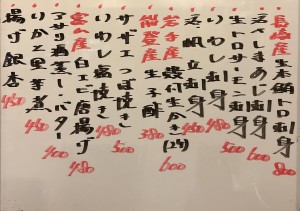 長崎産 生本鮪トロ刺 800
活〆しまあじ刺身 660
生トロサーモン刺身 500
いわし刺身 480
活帆立刺身 480
岩手産 殻付生かき(2ケ) 600
能登産 生子酢 380
サザエつぼ焼き 500
いわし塩焼き 480
富山産 白エビ唐揚げ 480
アサリ酒蒸し・バター 400
いかと里芋煮 480
揚げ銀杏 480